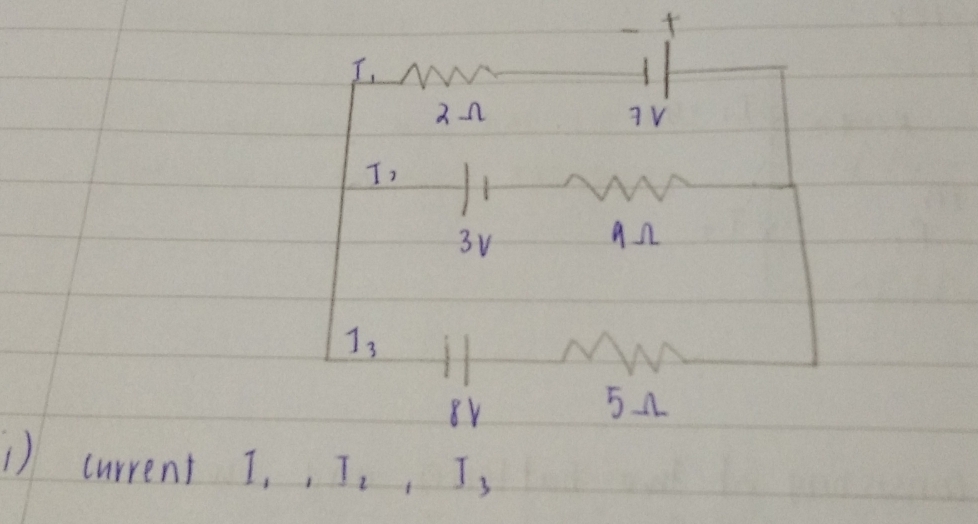 - +
I₁
2Ω 7V
I₂
3V 4Ω
I₃
8V 5Ω
i) current I₁ , I₂ , I₃